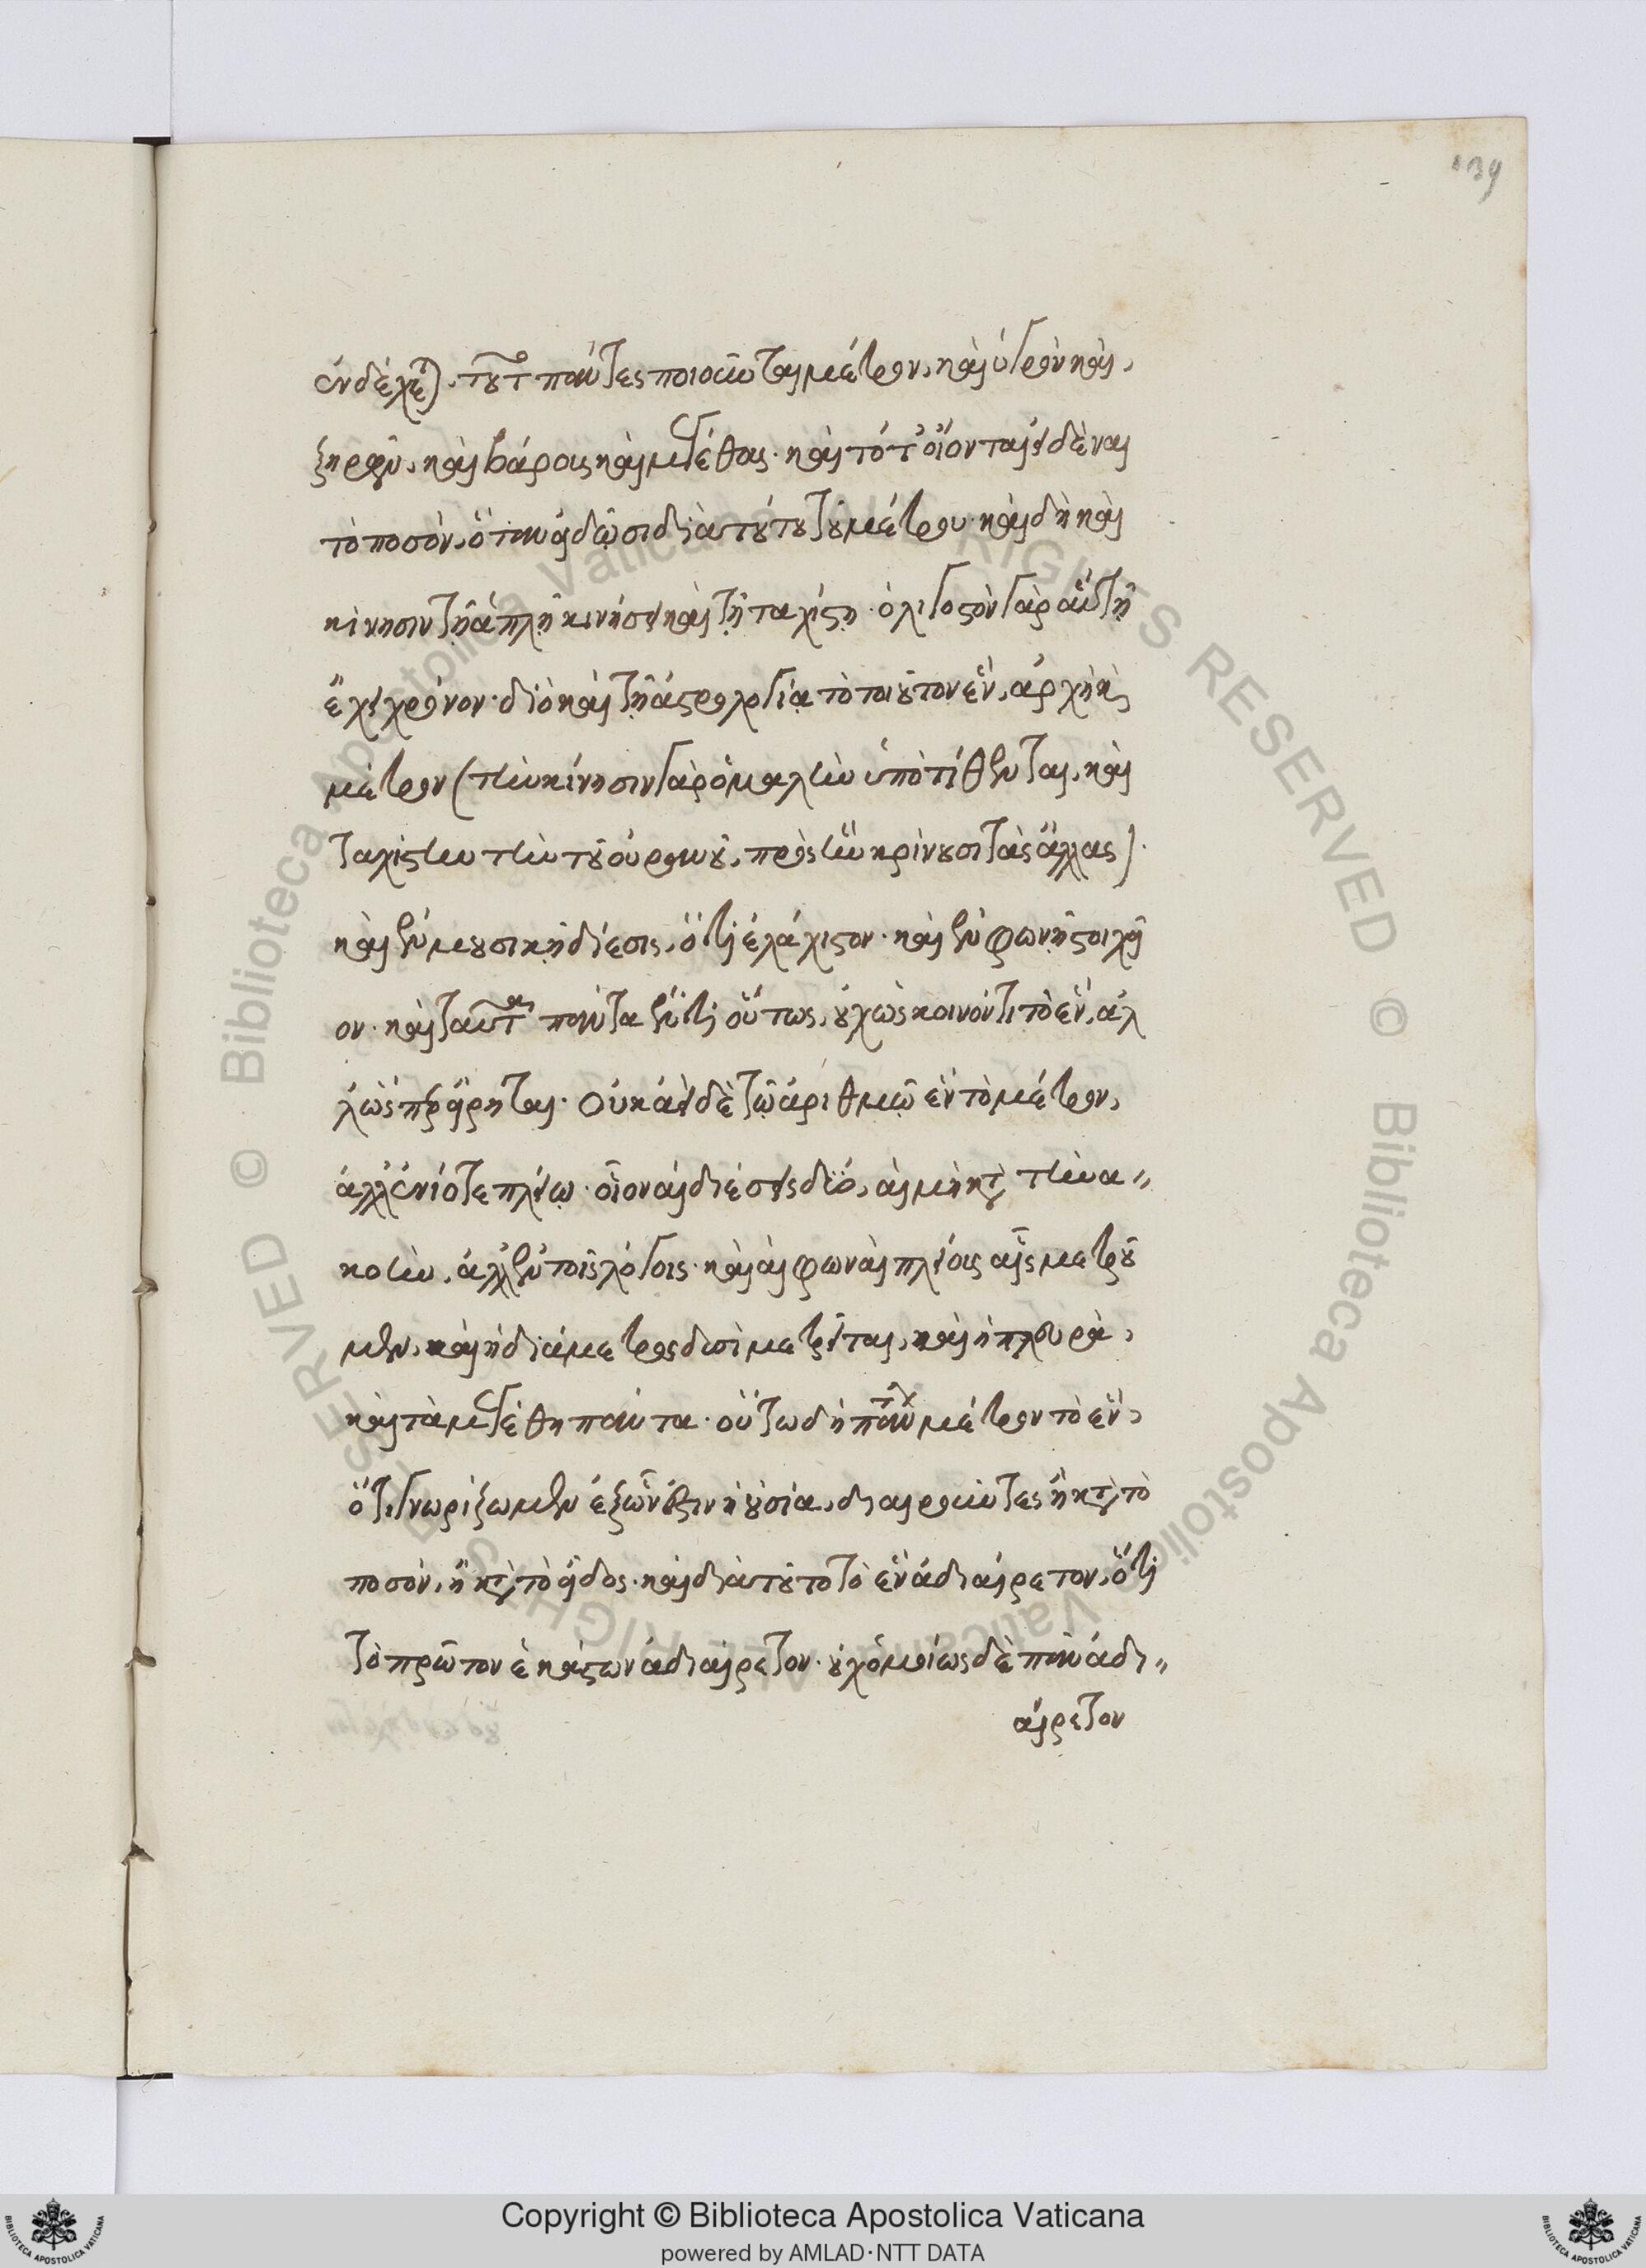 139
ἐνδέχεται. τοῦτο πάντες ποιοῦνται μέτρον, καὶ ὑγρὸν καὶ,
ξηροῦ, καὶ βάρους καὶ μεγέθους. καὶ τότ' οἴονται εἰδέναι
τὸ ποσόν, ὅταν εἰδῶσι διὰ τούτου τοῦ μέτρου. καὶ δὴ καὶ
κίνησιν τῇ ἁπλῇ κινήσει καὶ τῇ ταχίστῃ. ὀλιγοστὸν γὰρ αὕτη
ἔχει χρόνον. διὸ καὶ τῇ ἀστρολογίᾳ τὸ τοιοῦτον ἕν, ἀρχὴ κ
μέτρον (τὴν κίνησιν γὰρ ὁμαλὴν ὑποτίθενται, καὶ
ταχίστην τὴν τοῦ οὐρανοῦ, πρὸς ἣν κρίνουσι τὰς ἄλλας).
καὶ ἐν μουσικῇ δίεσις, ὅτι ἐλάχιστον. καὶ ἐν φωνῇ στοιχεῖ
ον. καὶ ταῦτα πάντα ἕν τι οὕτως, οὐχ ὡς κοινόν τι τὸ ἕν, ἀλ
λ' ὥσπερ εἴρηται. οὐκ ἀεὶ δὲ τῷ ἀριθμῷ ἓν τὸ μέτρον,
ἀλλ' ἐνίοτε πλείω. οἷον αἱ διέσεις δύο, αἱ μὴ κατὰ τὴν ἀ〃
κοήν, ἀλλ' ἐν τοῖς λόγοις. καὶ αἱ φωναὶ πλείους αἷς μετροῦ
μεν, καὶ ἡ διάμετρος δυσὶ μετρεῖται, καὶ ἡ πλευρά,
καὶ τὰ μεγέθη πάντα. οὕτω δὴ πάντων μέτρον τὸ ἕν,
ὅτι γνωρίζωμεν ἐξ ὧν ἐστιν ἡ οὐσία, διαιροῦντες ἢ κατὰ τὸ
ποσόν, ἢ κατὰ τὸ εἶδος. καὶ διὰ τοῦτο τὸ ἓν ἀδιαίρετον, ὅτι
τὸ πρῶτον ἑκάστων ἀδιαίρετον. οὐχ ὁμοίως δὲ πᾶν ἀδι〃
αίρετον
© Biblioteca Apostolica Vaticana ALL RIGHTS RESERVED © Biblioteca Apostolica Vaticana ALL RIGHTS RESERVED
BIBLIOTECA APOSTOLICA VATICANA
Copyright © Biblioteca Apostolica Vaticana
powered by AMLAD·NTT DATA
BIBLIOTECA APOSTOLICA VATICANA